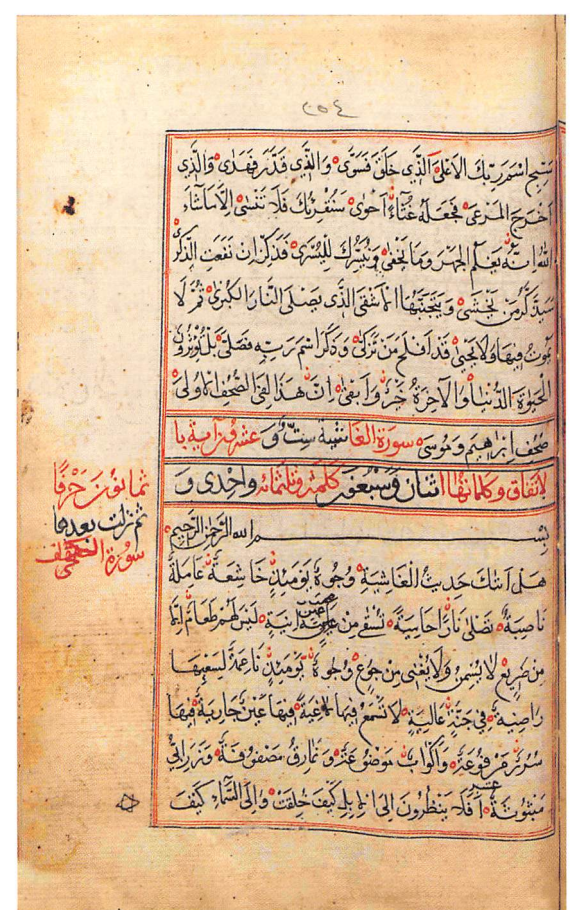 ٣٥٤
سَبِّحِ اسْمَ رَبِّكَ الْاَعْلَى الَّذِي خَلَقَ فَسَوّٰى وَالَّذِي قَدَّرَ فَهَدٰى وَالَّذِي
اَخْرَجَ الْمَرْعٰى فَجَعَلَهُ غُثَاءً اَحْوٰى سَنُقْرِئُكَ فَلَا تَنْسٰى اِلَّا مَا شَاءَ
اللهُ اِنَّهُ يَعْلَمُ الْجَهْرَ وَمَا يَخْفٰى وَنُيَسِّرُكَ لِلْيُسْرٰى فَذَكِّرْ اِنْ نَفَعَتِ الذِّكْرٰى
سَيَذَّكَّرُ مَنْ يَخْشٰى وَيَتَجَنَّبُهَا الْاَشْقَى الَّذِي يَصْلَى النَّارَ الْكُبْرٰى ثُمَّ لَا
يَمُوتُ فِيهَا وَلَا يَحْيٰى قَدْ اَفْلَحَ مَنْ تَزَكّٰى وَذَكَرَ اسْمَ رَبِّهِ فَصَلّٰى بَلْ تُؤْثِرُونَ
الْحَيٰوةَ الدُّنْيَا وَالْاٰخِرَةُ خَيْرٌ وَاَبْقٰى اِنَّ هٰذَا لَفِي الصُّحُفِ الْاُولٰى
صُحُفِ اِبْرٰهِيمَ وَمُوسٰى سورة الغاشية ستّ وعشرون آية با
لاتفاق وكلماتها اثنان وسبعون كلمة وثلثمائة واحدى و
ثمانون حرفًا
ثم نزلت بعدها
سورة الكهف
بِسْمِ اللهِ الرَّحْمٰنِ الرَّحِيمِ
هَلْ اَتٰيكَ حَدِيثُ الْغَاشِيَةِ وُجُوهٌ يَوْمَئِذٍ خَاشِعَةٌ عَامِلَةٌ
نَاصِبَةٌ تَصْلٰى نَارًا حَامِيَةً تُسْقٰى مِنْ عَيْنٍ اٰنِيَةٍ لَيْسَ لَهُمْ طَعَامٌ اِلَّا
مِنْ ضَرِيعٍ لَا يُسْمِنُ وَلَا يُغْنِي مِنْ جُوعٍ وُجُوهٌ يَوْمَئِذٍ نَاعِمَةٌ لِسَعْيِهَا
رَاضِيَةٌ فِي جَنَّةٍ عَالِيَةٍ لَا تَسْمَعُ فِيهَا لَاغِيَةً فِيهَا عَيْنٌ جَارِيَةٌ فِيهَا
سُرُرٌ مَرْفُوعَةٌ وَاَكْوَابٌ مَوْضُوعَةٌ وَنَمَارِقُ مَصْفُوفَةٌ وَزَرَابِيُّ
مَبْثُوثَةٌ اَفَلَا يَنْظُرُونَ اِلَى الْاِبِلِ كَيْفَ خُلِقَتْ وَاِلَى السَّمَاءِ كَيْفَ